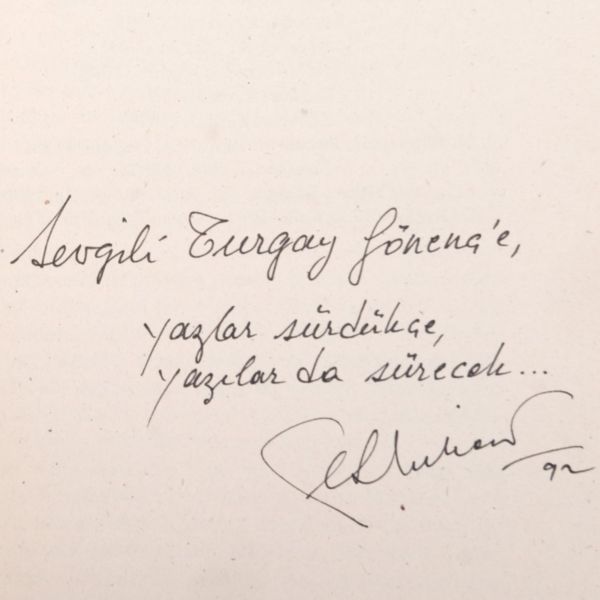 Sevgili Turgay Gönenç'e,
yazlar sürdükçe,
yazılar da sürecek...
92